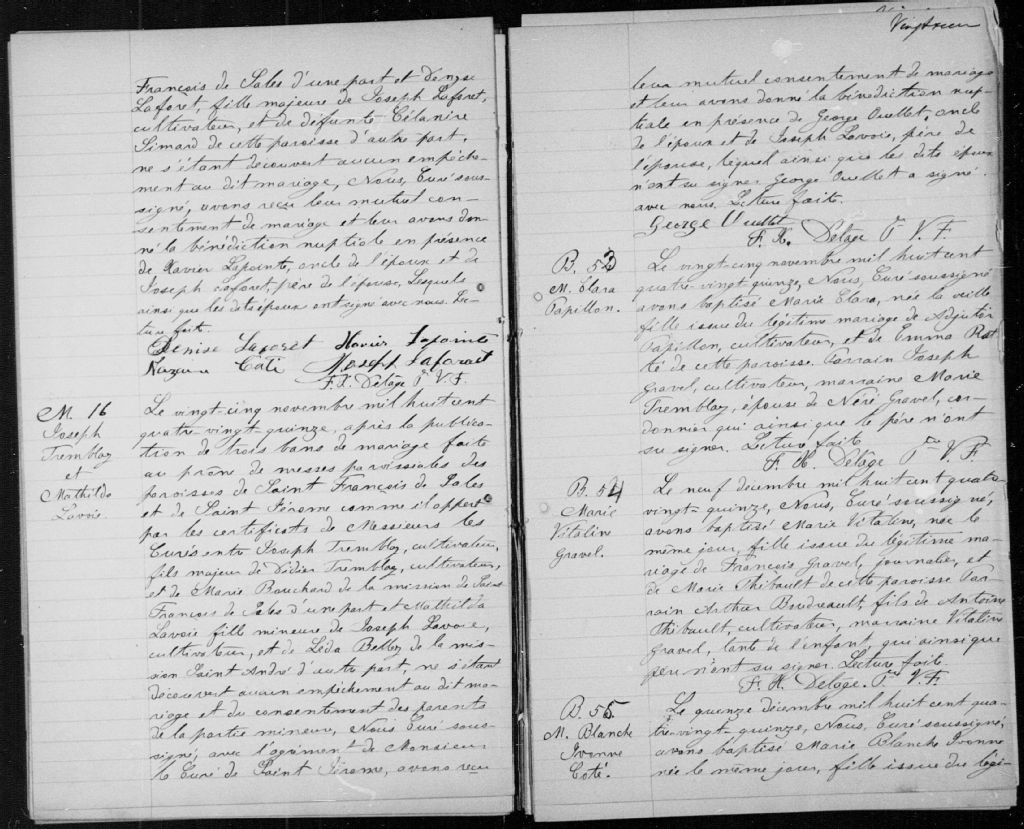 François de Sales d'une part et Denyse
Laforet, fille majeure de Joseph Laforet,
cultivateur, et de défunte Célanire
Simard de cette paroisse d'autre part,
ne s'étant découvert aucun empêche-
ment au dit mariage, Nous, Curé sous-
signé, avons reçu leur mutuel con-
sentement de mariage et leur avons don-
né la bénédiction nuptiale en présence
de Xavier Lapointe, oncle de l'époux et de
Joseph Laforet, père de l'épouse, Lesquels
ainsi que les dits époux ont signé avec nous. Lec-
ture faite.
Denise Laforet Xavier Lapointe
Coté Joseph Laforait
F. X. Delage Ptre V. F.
M. 16
Joseph
Tremblay
et
Mathilda
Lavoie.
Le vingt-cinq novembre mil huit cent
quatre-vingt-quinze, après la publica-
tion de trois bans de mariage faite
au prône de messes paroissiales des
paroisses de Saint François de Sales
et de Saint Jérome comme il appert
par les certificats de Messieurs les
Curés entre Joseph Tremblay, cultivateur,
fils majeur de Didier Tremblay, cultivateur,
et de Marie Bouchard de la mission de Saint
François de Sales d'une part et Mathilda
Lavoie fille mineure de Joseph Lavoie,
cultivateur, et de Léda Belley de la mis-
sion Saint André d'autre part, ne s'étant
découvert aucun empêchement au dit ma-
riage et du consentement des parents
de la partie mineur, Nous Curé sous-
signé, avec l'agrément de Monsieur
le Curé de Saint Jérome, avons reçu
leur mutuel consentement de mariage
et leur avons donné la bénédiction nup-
tiale en présence de George Ouellet, oncle
de l'époux et de Joseph Lavoie, père de
l'épouse, lequel ainsi que les dits époux
n'ont su signer George Ouellet a signé
avec nous. Lecture faite.
George Ouellet
F. X. Delage Ptre V. F.
B. 53
M. Clara
Papillon.
Le vingt-cinq novembre mil huit cent
quatre-vingt-quinze, Nous, Curé soussigné
avons baptisé Marie Clara, née la veille
fille issue du légitime mariage de Adjutor
Papillon, cultivateur, et de Emma Rat-
té de cette paroisse. Parrain Joseph
Gravel, cultivateur, marraine Marie
Tremblay, épouse de Néré Gravel, cor-
donnier qui ainsi que le père n'ont
su signer. Lecture faite
F. X. Delage Ptre V. F
B. 54
Marie
Vitaline
Gravel.
Le neuf décembre mil huit cent quatre
vingt-quinze, Nous, Curé soussigné,
avons baptisé Marie Vitaline, née le
même jour, fille issue du légitime ma-
riage de François Gravel, journalier, et
de Marie Thibault de cette paroisse Par-
rain Arthur Boudreault, fils de Antoine
Thibault, cultivateur, marraine Vitaline
Gravel, tante de l'enfant qui ainsi que
père n'ont su signer. Lecture faite.
F. X. Delage. Ptre V. F.
B. 55
M. Blanche
Ivonne
Coté.
Le quinze décembre mil huit cent qua-
tre-vingt-quinze, Nous, Curé soussigné,
avons baptisé Marie Blanche Ivonne
née le même jour, fille issue du légi-